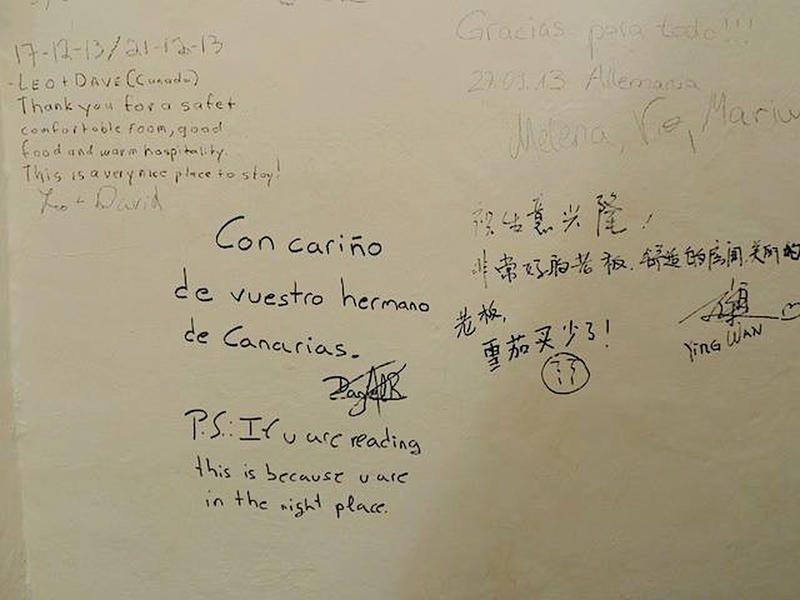 17-12-13/21-12-13
-LEO + DAVE (Canada)
Thank you for a safe,
comfortable room, good
food and warm hospitality.
This is a very nice place to stay!
Leo + David
Gracias para todo!!!
27.09.13 Allemania
Melena,
Con cariño
de vuestro hermano
de Canarias.
P.S.: If u are reading
this is because u are
in the right place.
祝生意兴隆!
非常好的老板.舒适的房间.美丽的
老板,
雪茄买少了!
YING WAN